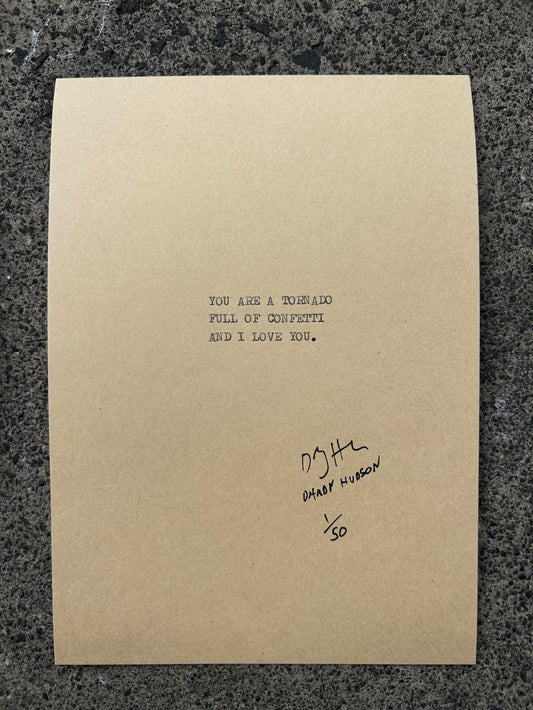 YOU ARE A TORNADO
FULL OF CONFETTI
AND I LOVE YOU.
DHABY HUDSON
1/50